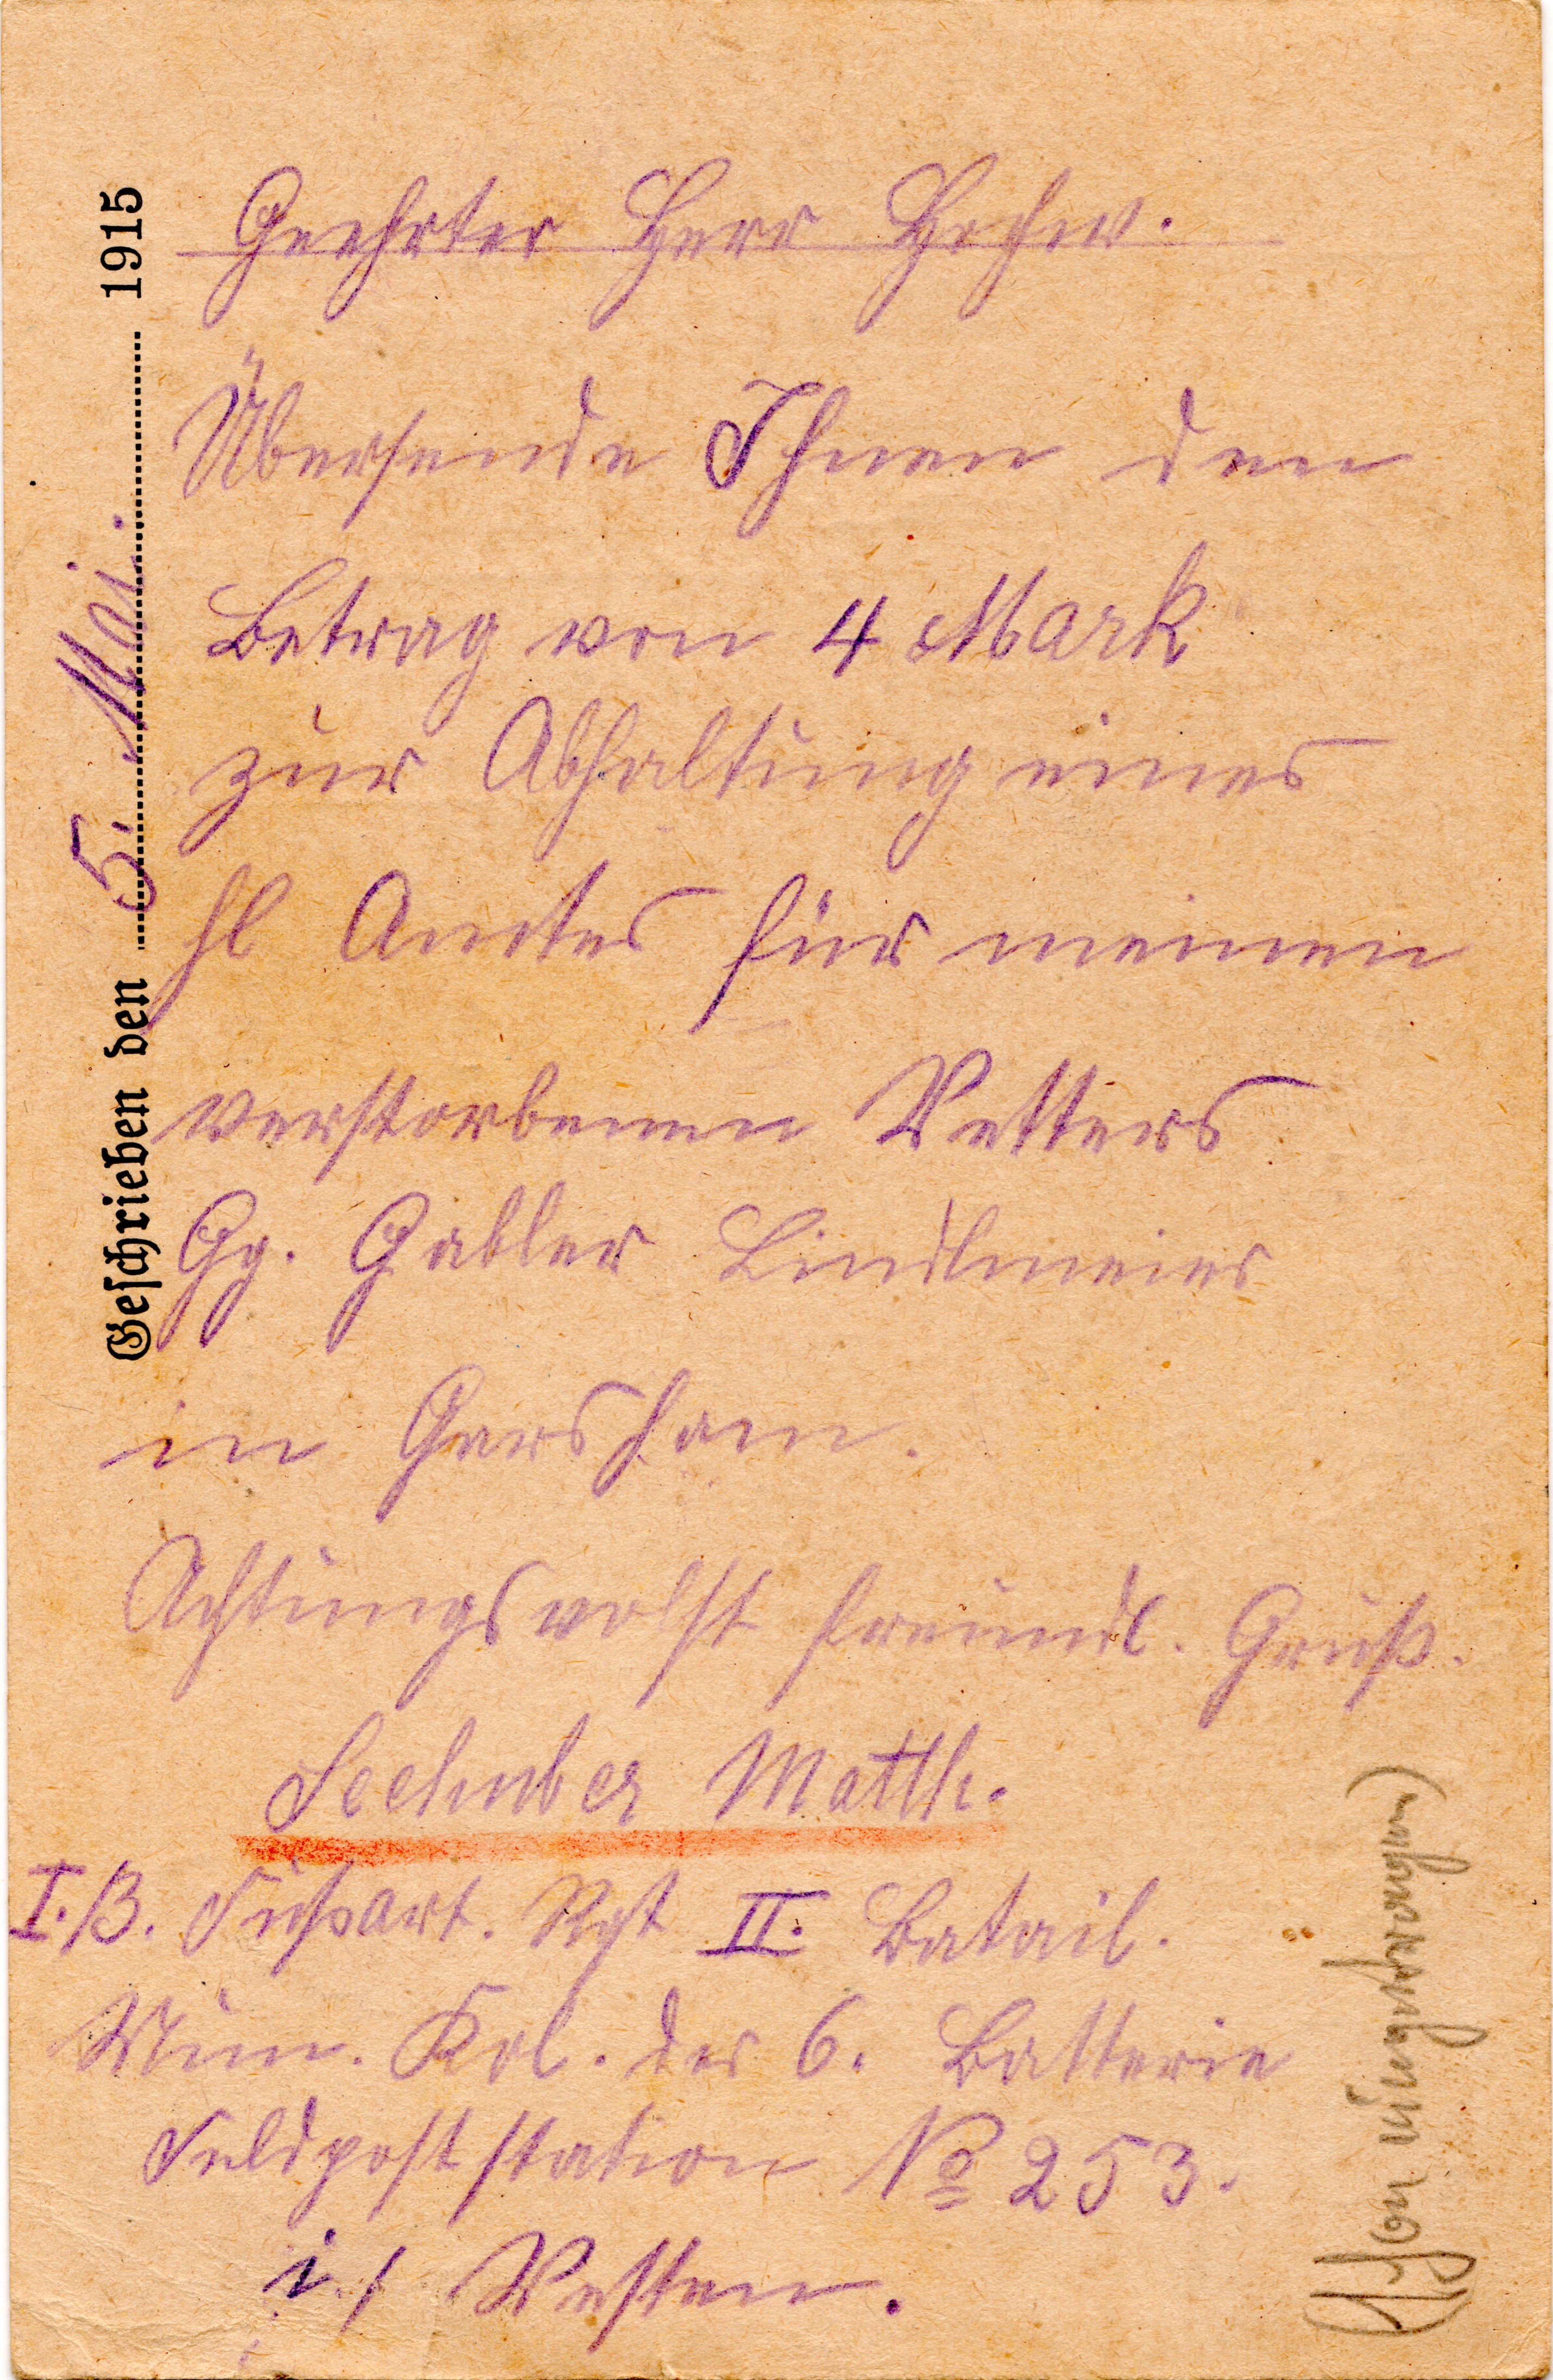 Geschrieben den 5. Mai. 1915
Geehrter Herr Hochw.
Übersende Ihnen den
Betrag von 4 Mark
zur Abhaltung eines
hl Amtes für meinen
verstorbenen Vetters
Gg. Gabler Lindlmeier
in Garsham.
Achtungsvollst freundl. Gruß.
Seehuber Matth.
I. B. Fußart. Rgt II. Batail.
Mun. Kol. der 6. Batterie
Feldpoststation No 253.
i./ Westen.
(Schon eingeschrieben)